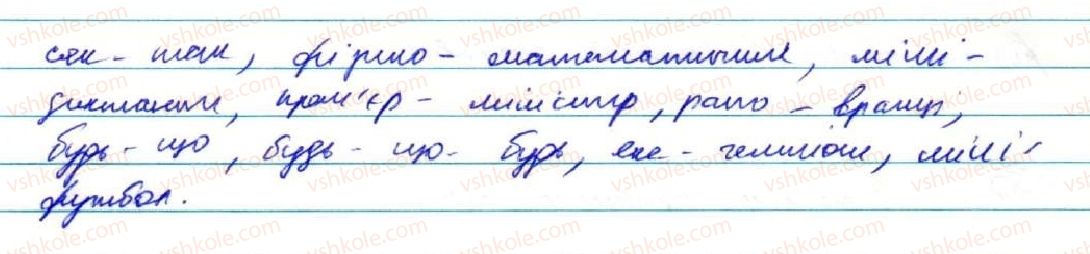 сяк - так, фізико - математичний, міні -
диктант, прем'єр - міністр, рано - вранці,
будь - що, будь - що - будь, екс - чемпіон, міні -
футбол.